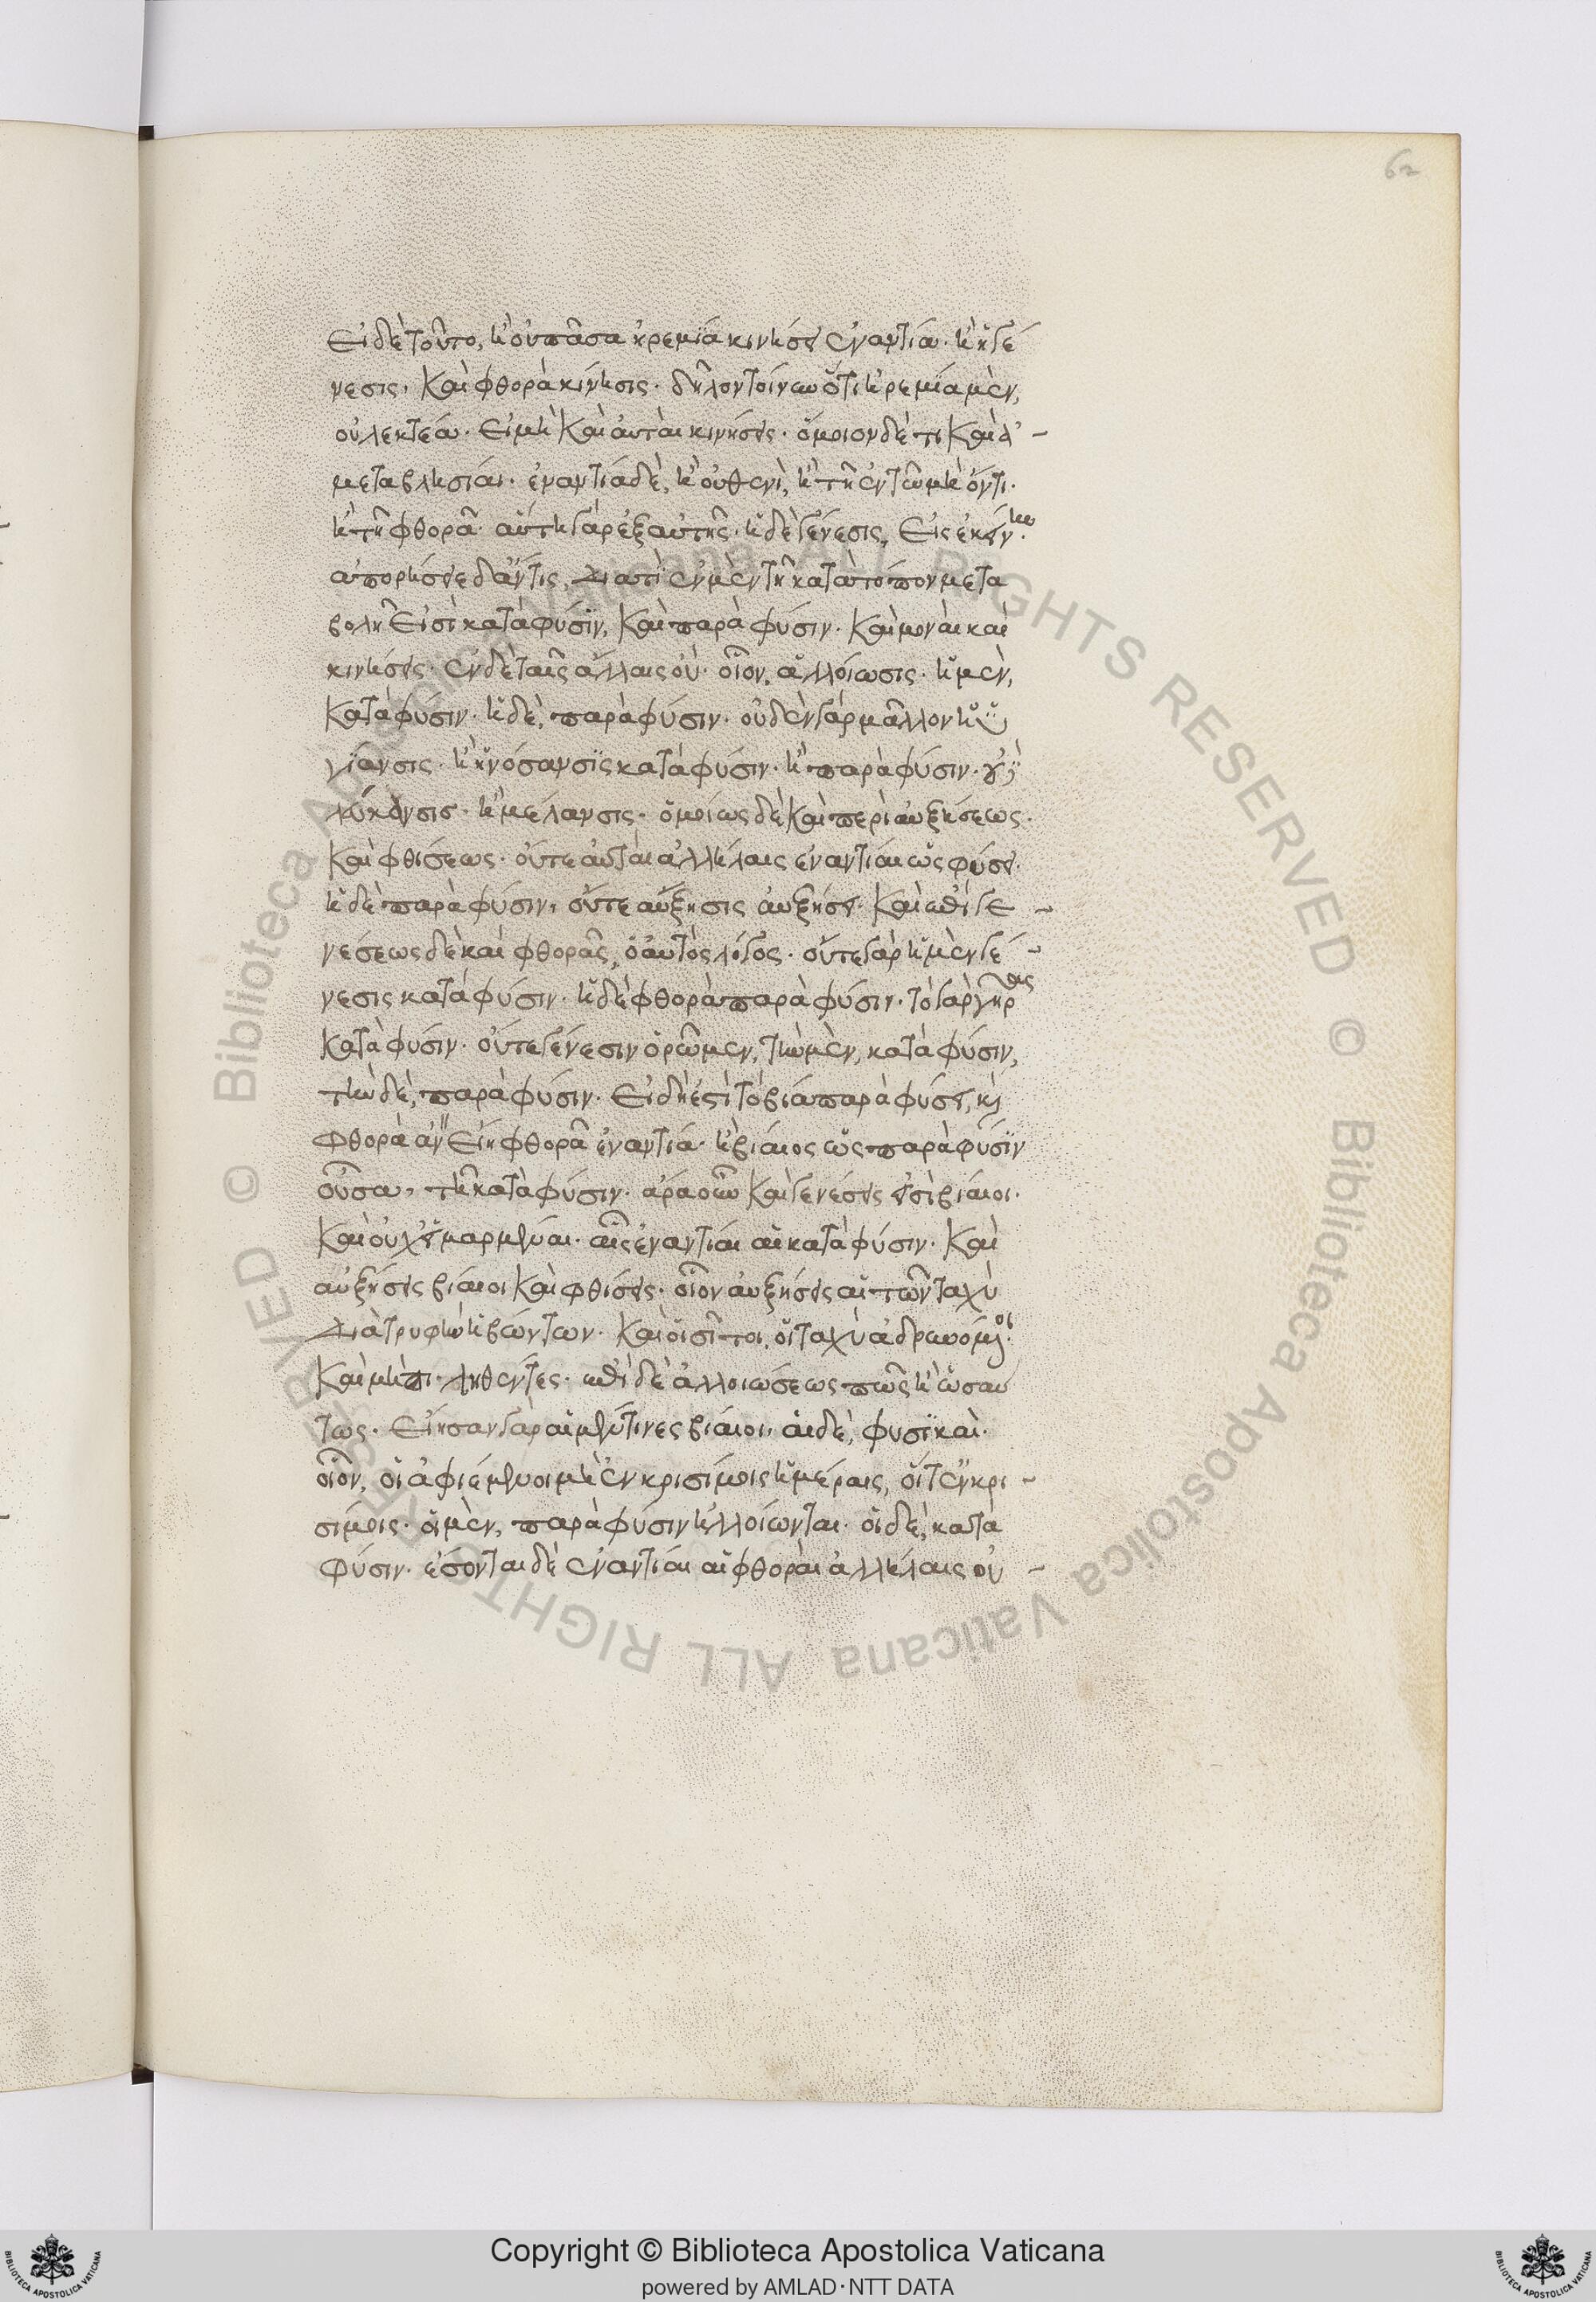 62
εἰ δὲ τοῦτο, ἢ οὐ πᾶσα ἠρεμία κινήσει ἐναντία· ἢ ἡ γέ
νεσις, καὶ φθορὰ κίνησις· δῆλον τοίνυν ὅτι ἠρεμία μὲν,
οὐ λεκτέα· εἰ μὴ καὶ αὐταὶ κινήσεις· ὅμοιον δέ τι καὶ ἀ-
μεταβλησίαι· ἐναντία δὲ, ἢ οὐθενὶ, ἢ τῆ ἐν τῶ μὴ ὄντι·
ἢ τῆ φθορᾶ· αὕτη γὰρ ἐξ αὐτῆς· ἡ δὲ γένεσις, εἰς ἐκείνην·
ἀπορήσειε δ' ἄν τις, διατί ἐν μὲν τῆ κατα τόπον μετα
βολῆ εἰσὶ κατὰ φύσιν, καὶ παρὰ φύσιν· καὶ μοναὶ καὶ
κινήσεις· ἐν δὲ ταῖς ἄλλαις οὐ· οἷον, ἀλλοίωσις· ἡ μὲν,
κατὰ φύσιν· ἡ δὲ, παρὰ φύσιν· οὐδὲν γὰρ μᾶλλον ἡ ὑ
γίανσις· ἢ ἡ νόσανσις κατὰ φύσιν· ἢ παρὰ φύσιν· οὐδὲ
λεύκανσις· ἢ μέλανσις· ὁμοίως δὲ καὶ περὶ αὐξήσεως·
καὶ φθίσεως· οὔτε αὗται ἀλλήλαις ἐναντίαι ὡς φύσει·
ἡ δὲ παρὰ φύσιν, οὔτε αὔξησις αὐξήσει· καὶ ἐπὶ γε-
νέσεως δὲ καὶ φθορᾶς, ὁ αὐτὸς λόγος· οὔτε γὰρ ἡ μὲν γέ-
νεσις κατὰ φύσιν· ἡ δὲ φθορὰ παρὰ φύσιν· τὸ γὰρ γηρᾶς
κατὰ φύσιν· οὔτε γένεσιν ὁρῶμεν, τὴν μὲν, κατὰ φύσιν,
τὴν δὲ, παρὰ φύσιν· εἰ δὴ ἐστὶ τὸ βία παρὰ φύσει, καὶ
φθορὰ ἂν εἴη φθορᾶ ἐναντία· ἡ βίαιος ὡς παρὰ φύσιν
οὖσα, τῆ κατὰ φύσιν· ἆρα οὖν καὶ γενέσεις εἰσὶ βίαιοι·
καὶ οὐχ εἱμαρμέναι· αἷς ἐναντίαι αἱ κατὰ φύσιν· καὶ
αὐξήσεις βίαιοι καὶ φθίσεις· οἷον αὐξήσεις αἱ τῶν ταχὺ
διὰ τρυφὴν ἡβώντων· καὶ οἱ σῖτοι οἱ ταχὺ ἁδρυνόμενοι·
καὶ μὴ πιληθέντες· ἐπὶ δὲ ἀλλοιώσεως πῶς ἢ ὡσαύ
τως· εἴησαν γὰρ ἂν μέν τινες βίαιοι, αἱ δὲ, φυσικαὶ·
οἷον, οἱ ἀφιέμενοι μὴ ἐν κρισίμοις ἡμέραις, οἵ τ' ἐν κρι-
σίμοις· οἱ μὲν, παρὰ φύσιν ἠλλοίωνται· οἱ δὲ, κατα
φύσιν· ἔσονται δὲ ἐναντίαι αἱ φθοραὶ ἀλλήλαις οὐ-
Copyright © Biblioteca Apostolica Vaticana
powered by AMLAD·NTT DATA
© Biblioteca Apostolica Vaticana ALL RIGHTS RESERVED © Biblioteca Apostolica Vaticana ALL RIGHTS RESERVED